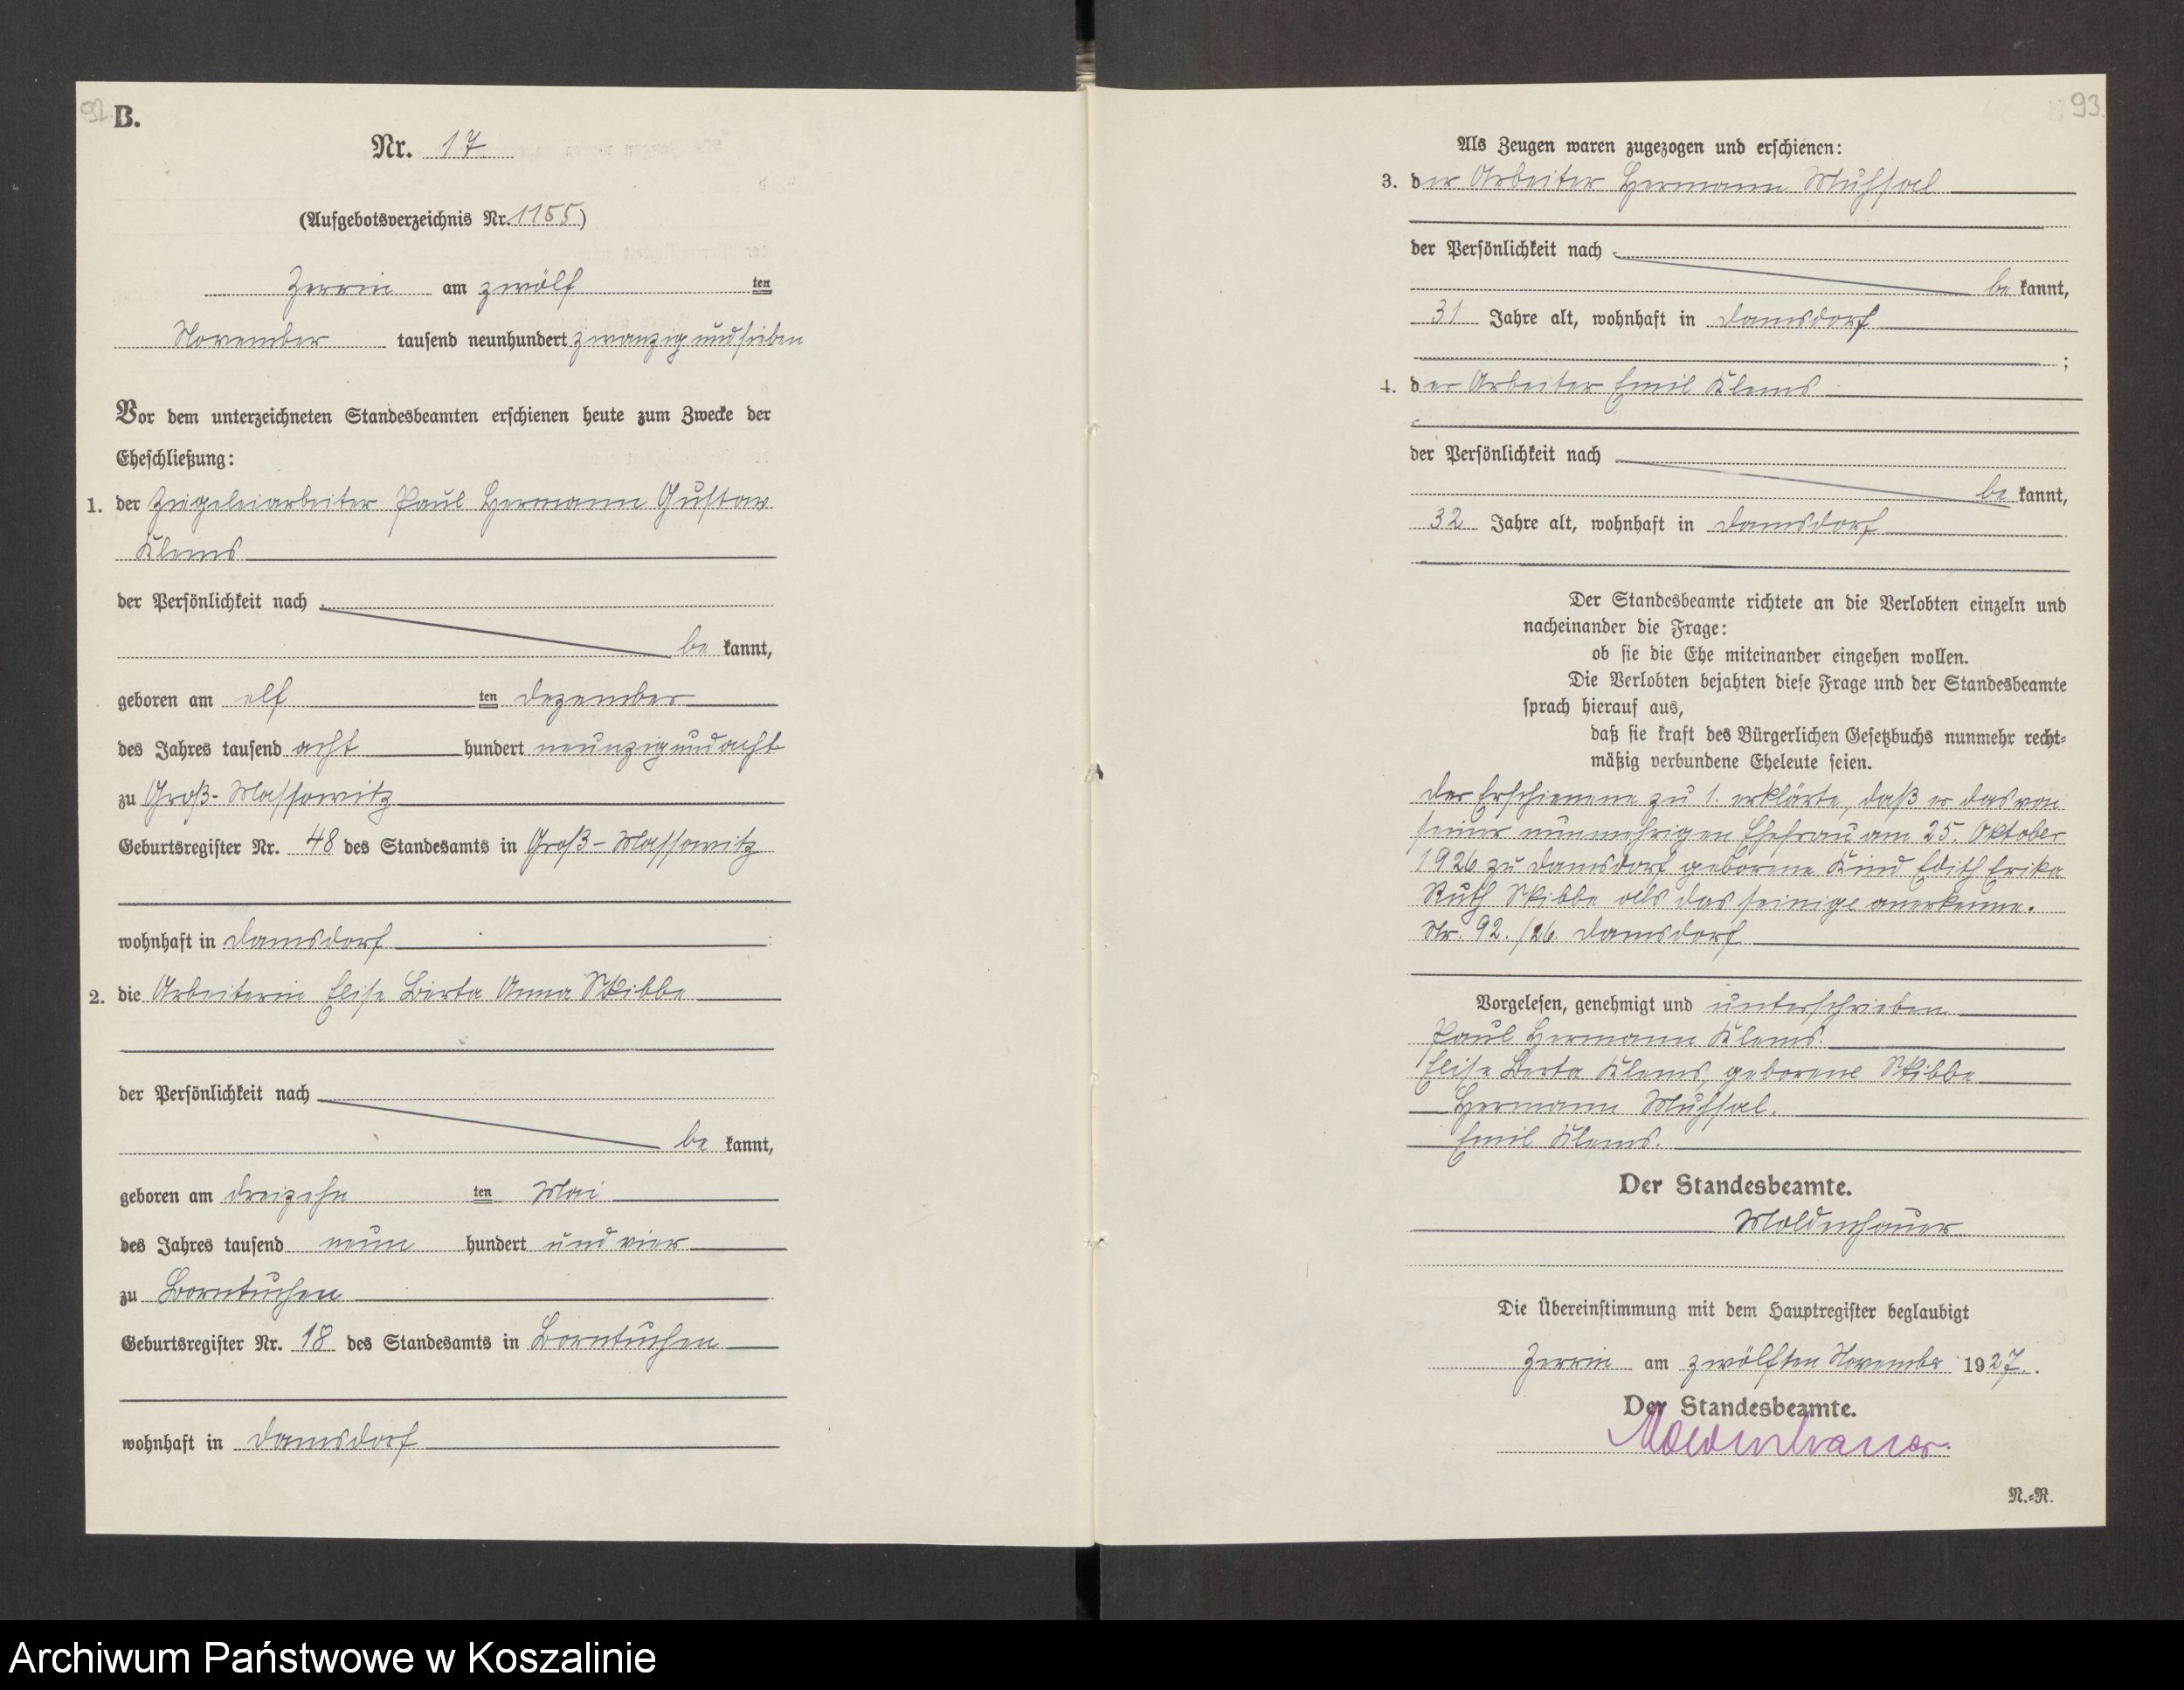 92.
B.
Nr. 17
(Aufgebotsverzeichnis Nr. 1155)
Zerrin am zwölf ten
November tausend neunhundert zwanzig und sieben
Vor dem unterzeichneten Standesbeamten erschienen heute zum Zwecke der
Eheschließung:
1. der Ziegeleiarbeiter Paul Hermann Gustav
Klems
der Persönlichkeit nach
be kannt,
geboren am elf ten Dezember
des Jahres tausend acht hundert neunzig und acht
zu Groß-Massowitz
Geburtsregister Nr. 48 des Standesamts in Groß-Massowitz
wohnhaft in Damsdorf
2. die Arbeiterin Elise Berta Anna Skibbe
der Persönlichkeit nach
be kannt,
geboren am dreizehn ten Mai
des Jahres tausend neun hundert und vier
zu Borntuchen
Geburtsregister Nr. 18 des Standesamts in Borntuchen
wohnhaft in Damsdorf
93.
Als Zeugen waren zugezogen und erschienen:
3. der Arbeiter Hermann
der Persönlichkeit nach
be kannt,
31 Jahre alt, wohnhaft in Damsdorf
;
4. der Arbeiter Emil Klems
der Persönlichkeit nach
be kannt,
32 Jahre alt, wohnhaft in Damsdorf
Der Standesbeamte richtete an die Verlobten einzeln und
nacheinander die Frage:
ob sie die Ehe miteinander eingehen wollen.
Die Verlobten bejahten diese Frage und der Standesbeamte
sprach hierauf aus,
daß sie kraft des Bürgerlichen Gesetzbuchs nunmehr recht-
mäßig verbundene Eheleute seien.
Der Erschienene zu 1. erklärte, daß er das von
seiner nunmehrigen Ehefrau am 25. Oktober
1926 zu Damsdorf geborene Kind Edith Erika
Ruth Skibbe als das seinige anerkenne.
Nr. 92./26. Damsdorf
Vorgelesen, genehmigt und unterschrieben
Paul Hermann Klems.
Elise Berta Klems, geborene Skibbe
Hermann
Emil Klems.
Der Standesbeamte.
Moldenhauer
Die Übereinstimmung mit dem Hauptregister beglaubigt
Zerrin am zwölften November 1927.
Der Standesbeamte.
Moldenhauer.
N.-R.
Archiwum Państwowe w Koszalinie